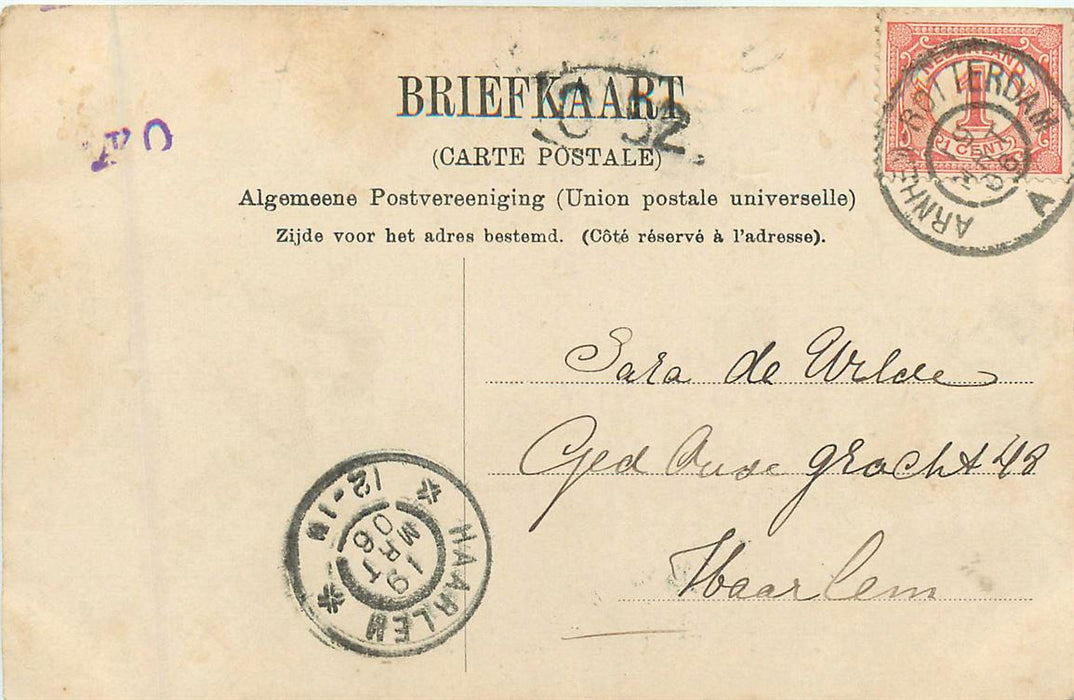 BRIEFKAART
(CARTE POSTALE)
Algemeene Postvereeniging (Union postale universelle)
Zijde voor het adres bestemd. (Côté réservé à l'adresse).
NEDERLAND
1
1 CENT
ARNHEM ROTTERDAM
A
Sara de Wilde
Ged Oude gracht 48
Haarlem
HAARLEM
12-1N
19
MRT
06